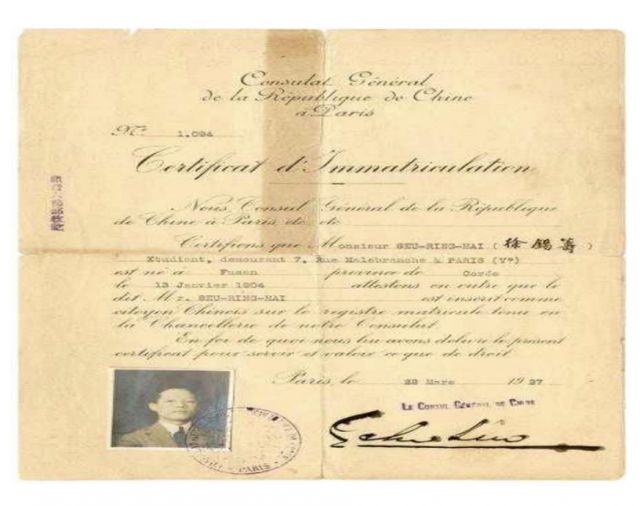 Consulat Général
de la République de Chine
à Paris
Nº 1.094
Certificat d'Immatriculation
Nous, Consul Général de la République
de Chine à Paris, etc etc
Certifions que Monsieur SEU-RING-HAI (徐嶺海)
Etudiant, demeurant 7, Rue Malebranche à PARIS (Vº)
est né à Fusan province de Corée
le 13 Janvier 1904 attestons en outre que le
dit Mr. SEU-RING-HAI est inscrit comme
citoyen Chinois sur le registre matricule tenu en
la Chancellerie de notre Consulat
En foi de quoi nous lui avons délivré le présent
certificat pour servir et valoir ce que de droit
Paris, le 22 Mars 1937
LE CONSUL GÉNÉRAL DE CHINE
PARIS